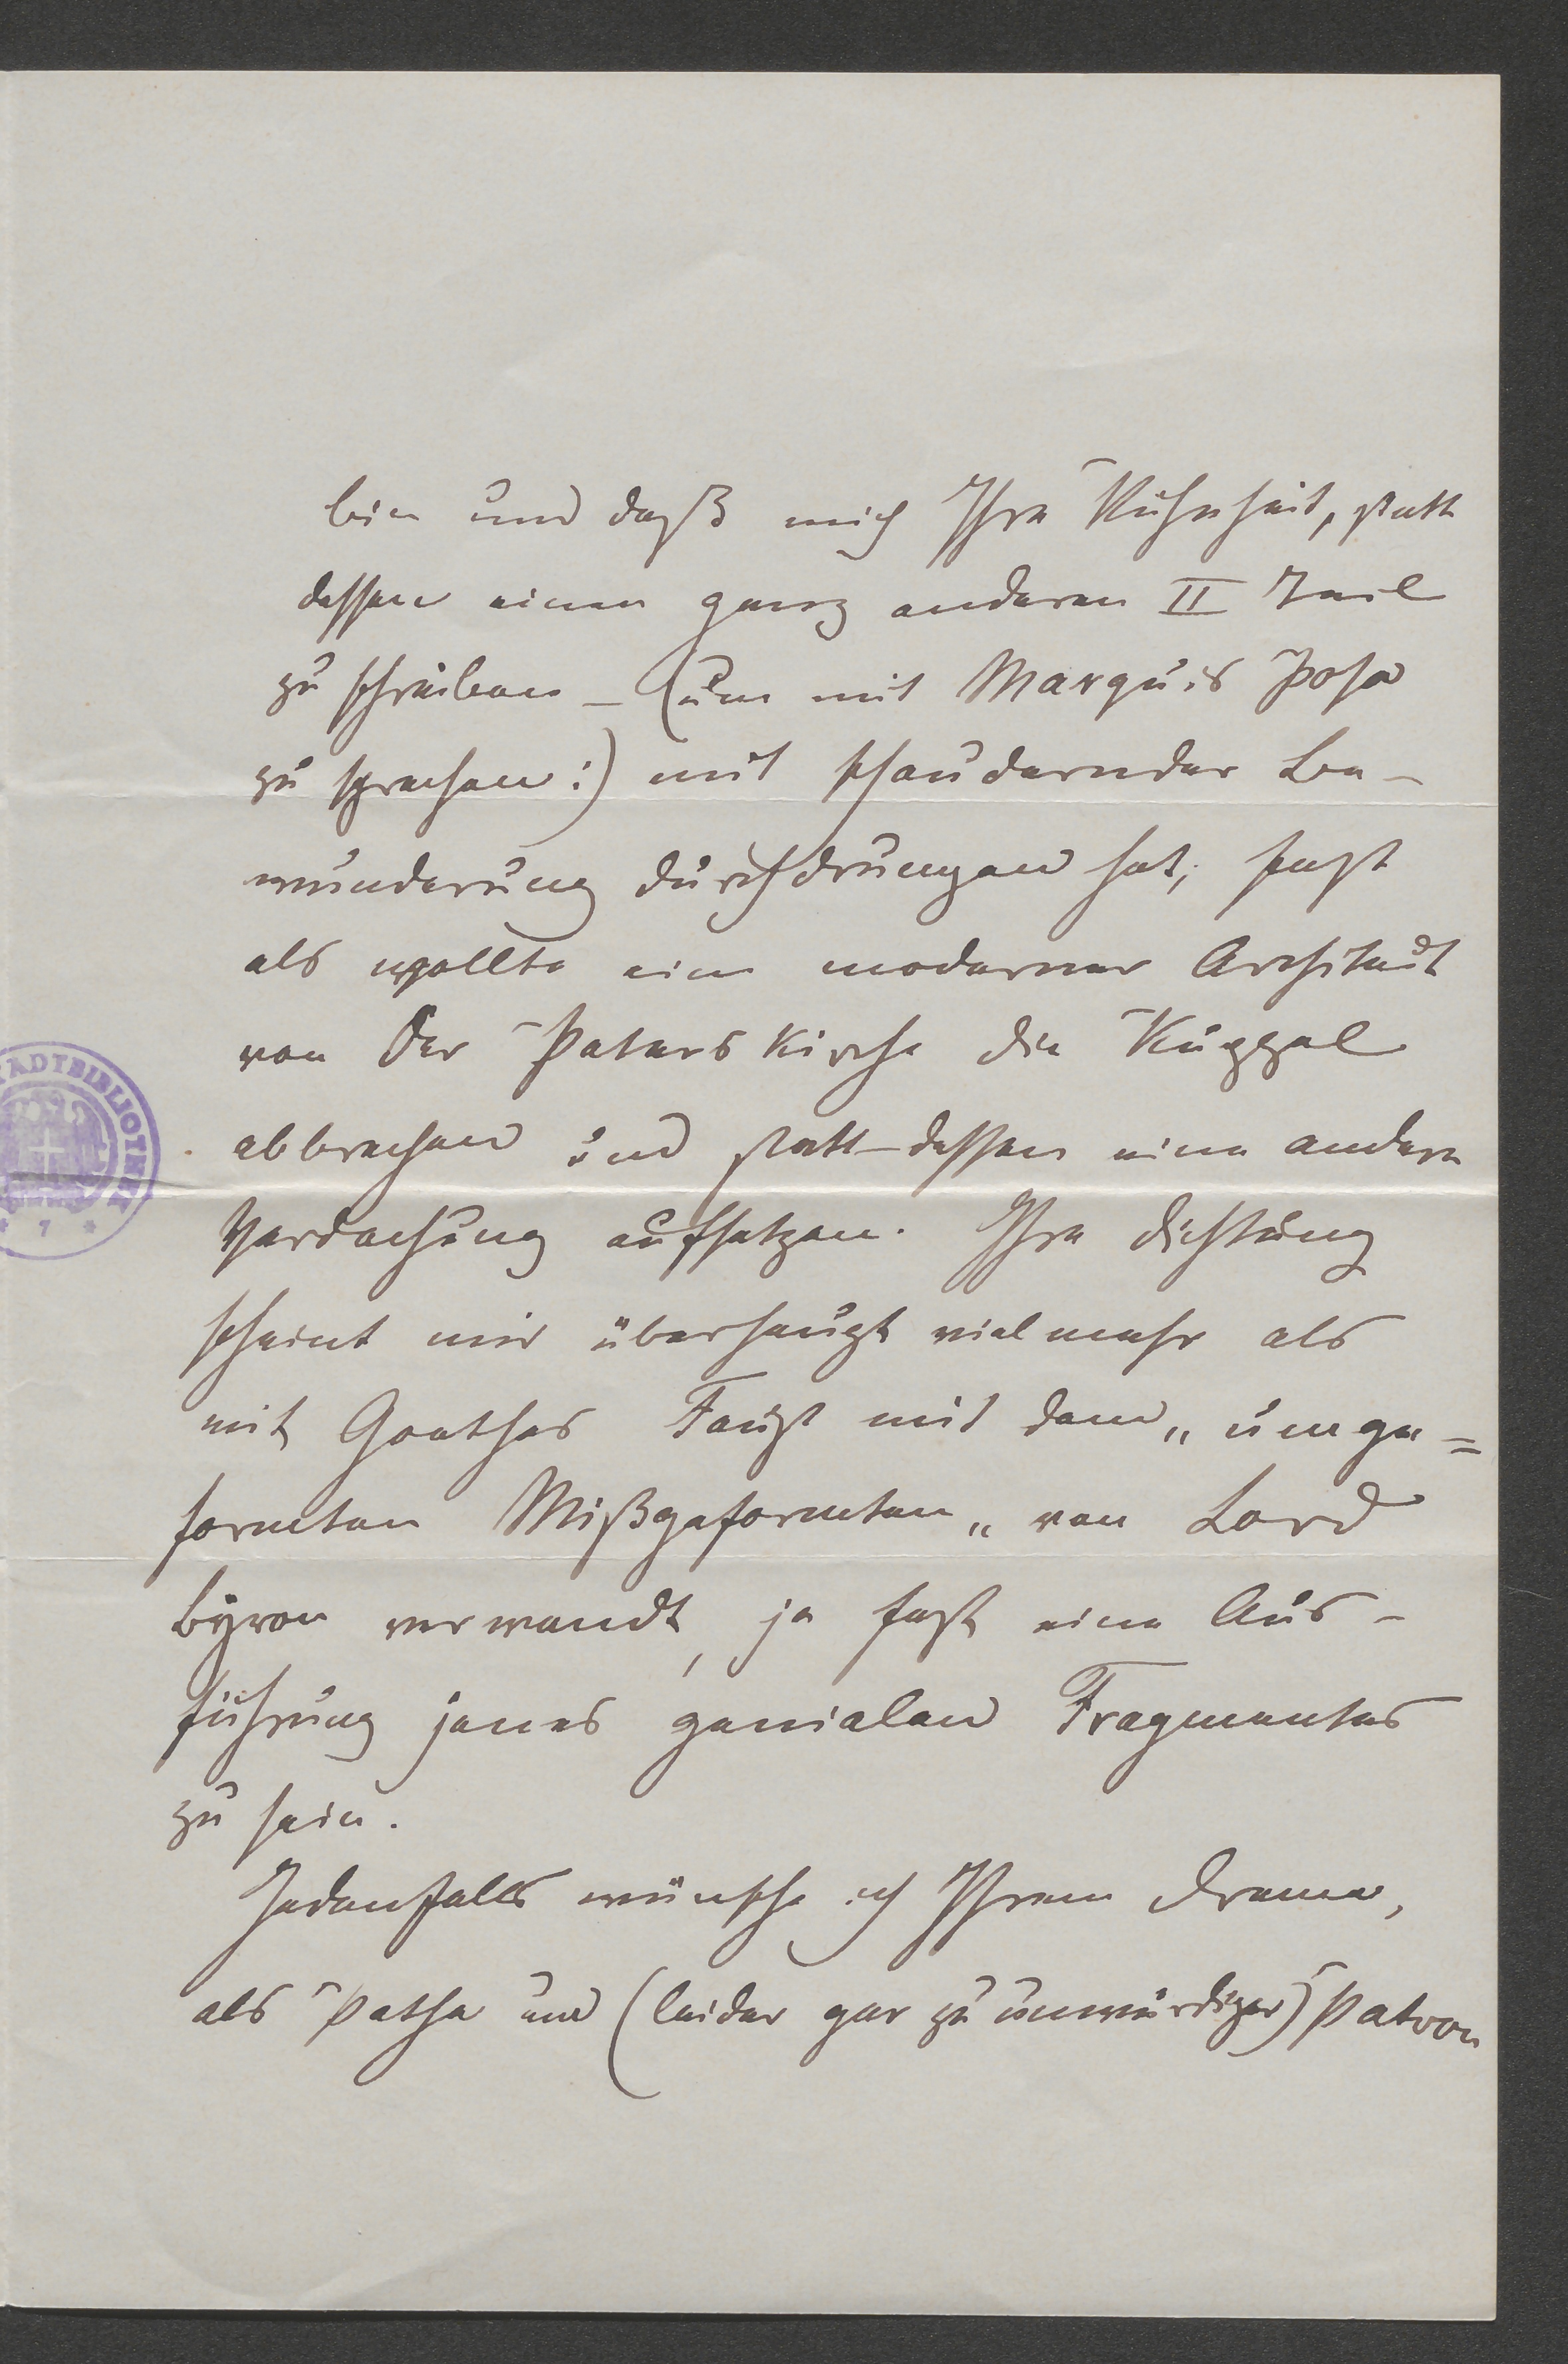 bin und daß mich Ihre Kühnheit, statt
dessen einen ganz anderen II Teil
zu schreiben – (um mit Marquis Posa
zu sprechen:) mit schaudernder Be-
wunderung durchdrungen hat; fast
als wollte ein moderner Architect
von der Peters Kirche die Kuppel
abbrechen und statt-dessen eine andere
Verdachung aufsetzen. Ihre Dichtung
scheint mir überhaupt viel mehr als
mit Goethes Faust mit dem „umge=
formten Mißgeformten„ von Lord
Byron verwandt, ja fast eine Aus-
führung jenes genialen Fragmentes
zu sein.
Jedenfalls wünsche ich Ihrem Drama,
als Pathe und (leider gar zu unwürdiger) Patron
STADTBIBLIOTHEK
* 7 *